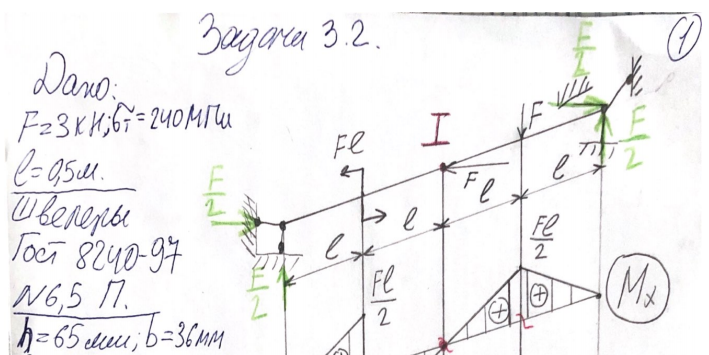 Задача 3.2.
1
Дано:
F=3кН; σт=240МПа
l=0,5м.
Швелеры
Гост 8240-97
N6,5 П.
h=65мм; b=36мм
F/2
F/2
Fl
I
F
F
F/2
F/2
l
l
l
l
Fl/2
Fl/2
Mx
+
+